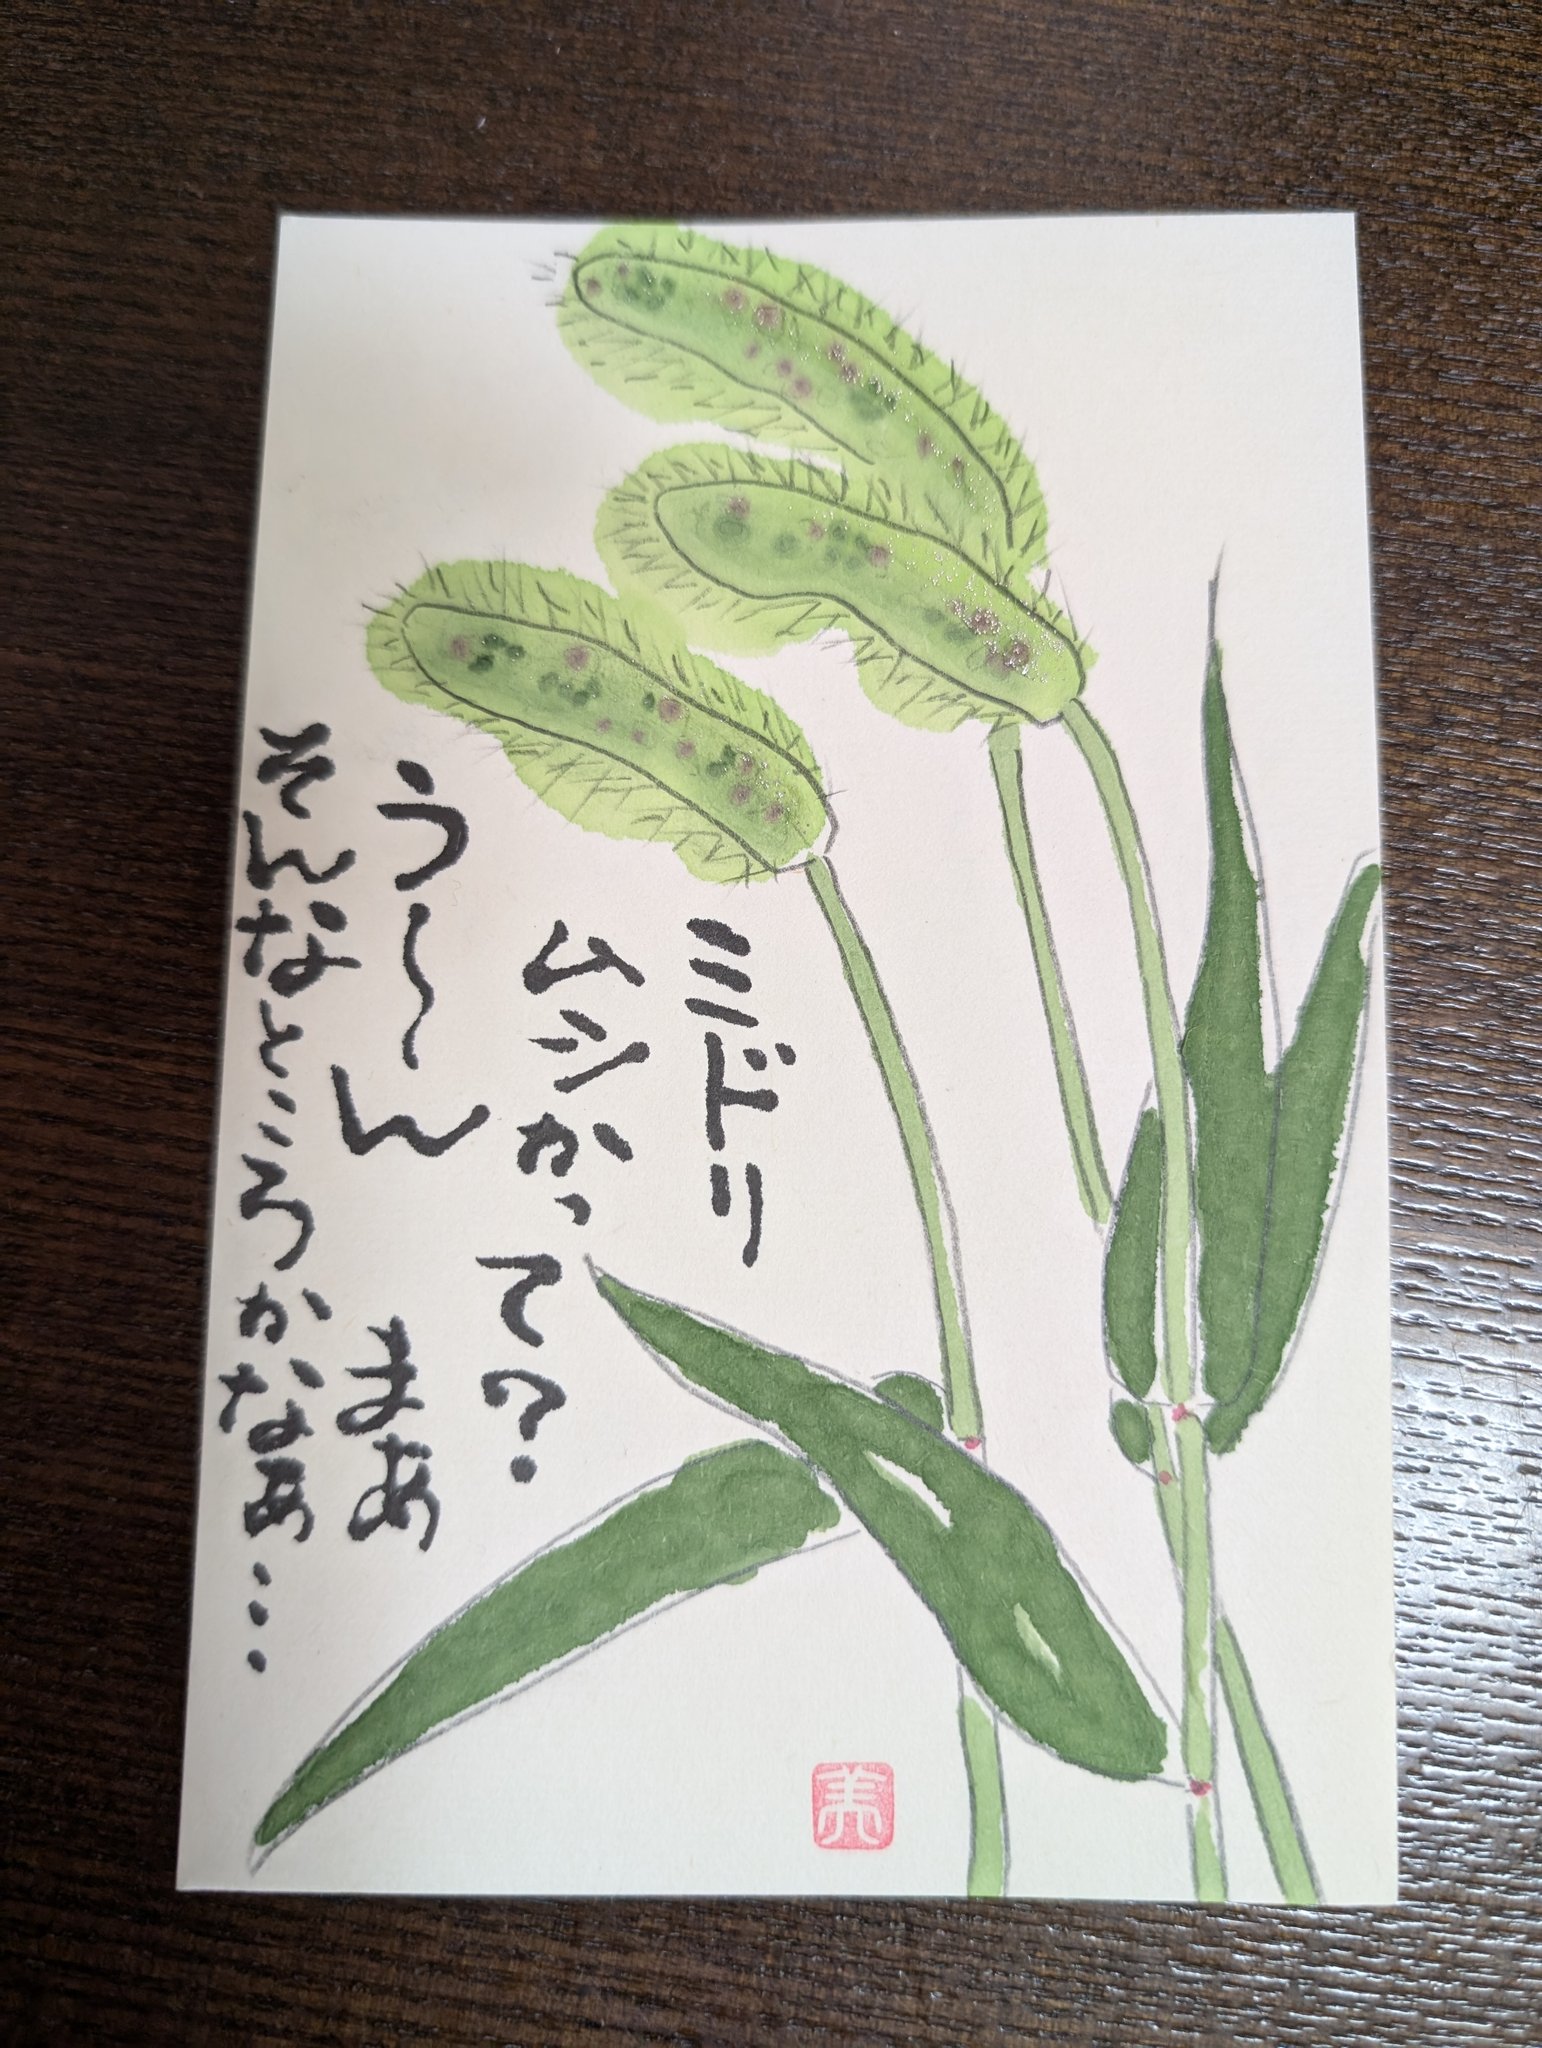 ミドリ
ムシかって?
う～ん まあ
そんなところかなあ…
美